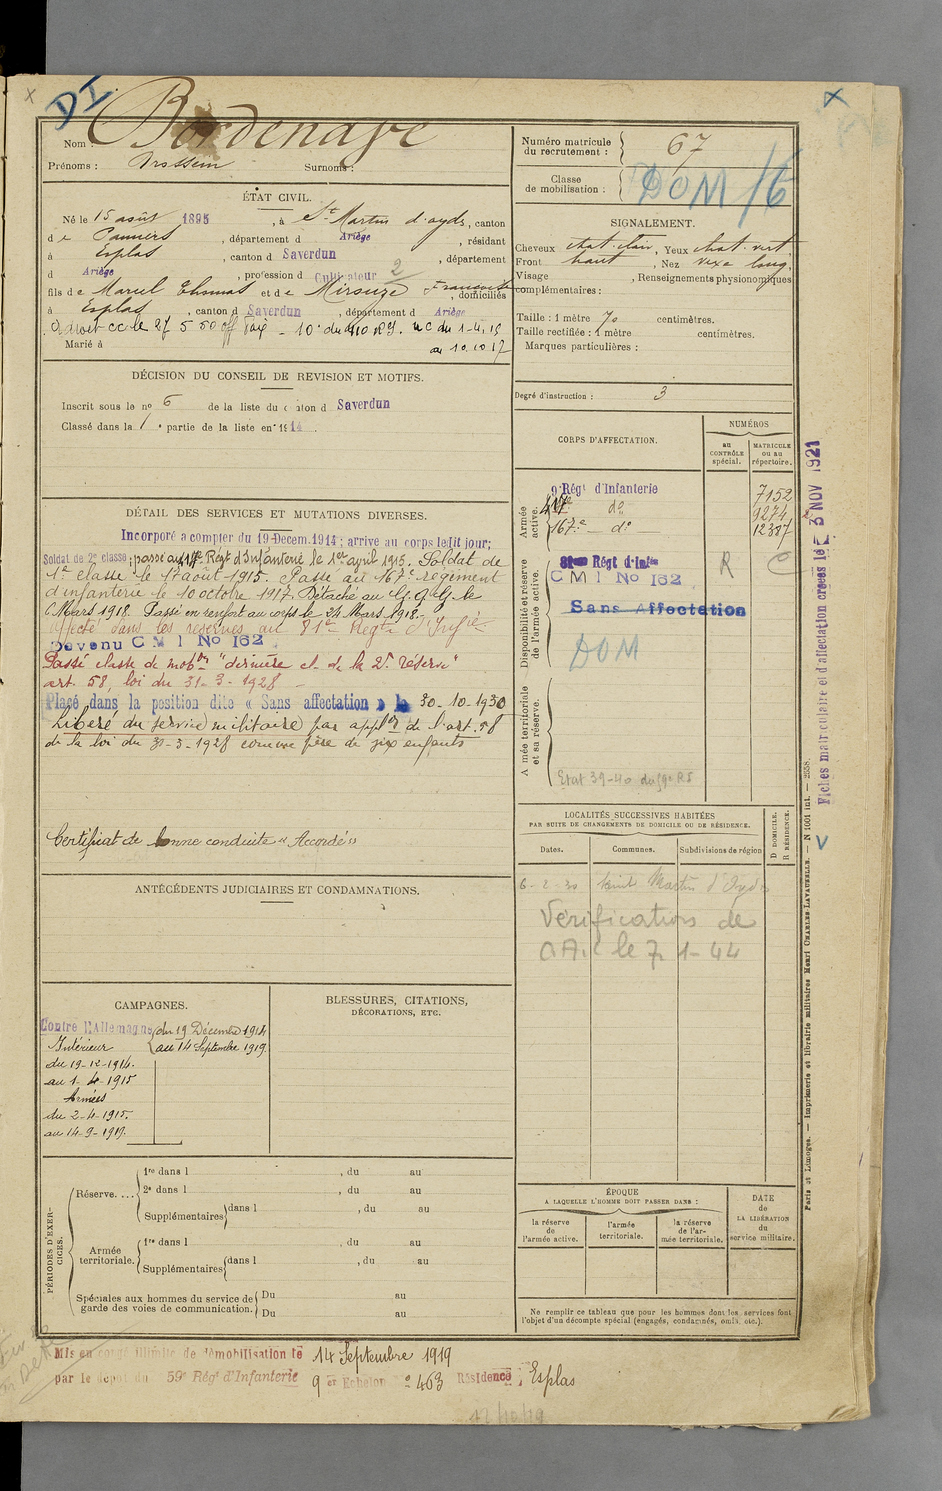 DI
Bordenave
Nom :
Prénoms :
Surnoms :
Numéro matricule du recrutement : 67
Classe de mobilisation : DOM/6
ÉTAT CIVIL.
Né le 15 août 1895, à St Martin d'oydes, canton
de Pamiers, département d Ariège, résidant
à Esplas, canton d Saverdun, département
d Ariège, profession d Cultivateur 2
fils de Marcel Thomas et de Mirouze Françoise, domiciliés
à Esplas, canton d Saverdun, département d Ariège
Marié à
au 10.10.17
SIGNALEMENT.
Cheveux chat. clair, Yeux chat. vert
Front haut, Nez vexe long,
Visage , Renseignements physionomiques
complémentaires :
Taille : 1 mètre 70 centimètres.
Taille rectifiée : 1 mètre centimètres.
Marques particulières :
Degré d'instruction : 3
DÉCISION DU CONSEIL DE REVISION ET MOTIFS.
Inscrit sous le no 6 de la liste du canton d Saverdun
Classé dans la 1re partie de la liste en 1914.
DÉTAIL DES SERVICES ET MUTATIONS DIVERSES.
Incorporé à compter du 19 Decem. 1914 ; arrivé au corps ledit jour;
Soldat de 2e classe ; passé au 417e Régt d'Infanterie le 1er avril 1915. Soldat de
1re classe le 17 août 1915. Passé au 167e régiment
d'infanterie le 10 octobre 1917. Détaché au G.Q.G. le
Mars 1918. Passé en renfort au corps le 24 Mars 1918.
Affecté dans les réserves au 81e Régt d'Infie
Devenu C M I No 162
Passé classe de mobon "dernière cl. de la 2e réserve"
art. 58, loi du 31-3-1928
Placé dans la position dite « Sans affectation » le 30-10-1930
Libéré du service militaire par applon de l'art. 58
de la loi du 31-3-1928 comme père de six enfants
Certificat de bonne conduite « Accordé »
CORPS D'AFFECTATION.
NUMÉROS
au CONTRÔLE spécial.
MATRICULE ou au répertoire.
Armée active.
9e Régt d'Infanterie 7152
417e do 9274
167e do 12387
Disponibilité et réserve de l'armée active.
81e Régt d'Infie R C
C M I No 162
Sans Affectation
DOM
Armée territoriale et sa réserve.
Fiches matriculaire et d'affectation créées le 3 NOV 1921
LOCALITÉS SUCCESSIVES HABITÉES
PAR SUITE DE CHANGEMENTS DE DOMICILE OU DE RÉSIDENCE.
Dates. Communes. Subdivisions de région
D DOMICILE.
R RÉSIDENCE.
6-2-30 Saint Martin d'Oydes
Vérification de
le 7 1-44
ANTÉCÉDENTS JUDICIAIRES ET CONDAMNATIONS.
CAMPAGNES.
Contre l'Allemagne du 19 Décembre 1914
au 14 Septembre 1919.
Intérieur
du 19-12-1914.
au 1-4-1915
Armées
du 2-4-1915.
au 14-9-1919.
BLESSURES, CITATIONS,
DÉCORATIONS, ETC.
PÉRIODES D'EXERCICES.
Réserve.... 1re dans l , du au
2e dans l , du au
Supplémentaires dans l , du au
Armée territoriale. 1re dans l , du au
Supplémentaires dans l , du au
Spéciales aux hommes du service de garde des voies de communication. Du au
Du au
ÉPOQUE
A LAQUELLE L'HOMME DOIT PASSER DANS :
la réserve de l'armée active.
l'armée territoriale.
la réserve de l'armée territoriale.
DATE de LA LIBÉRATION du service militaire.
Ne remplir ce tableau que pour les hommes dont les services font
l'objet d'un décompte spécial (engagés, condamnés, omis, etc.).
Paris et Limoges. — Imprimerie et librairie militaires Henri CHARLES-LAVAUZELLE. — N 1001 int. — 2658.
Mis en congé illimité de démobilisation le 14 Septembre 1919
par le dépôt du 59e Régt d'Infanterie 9 er Echelon no 463 Résidence ; Esplas